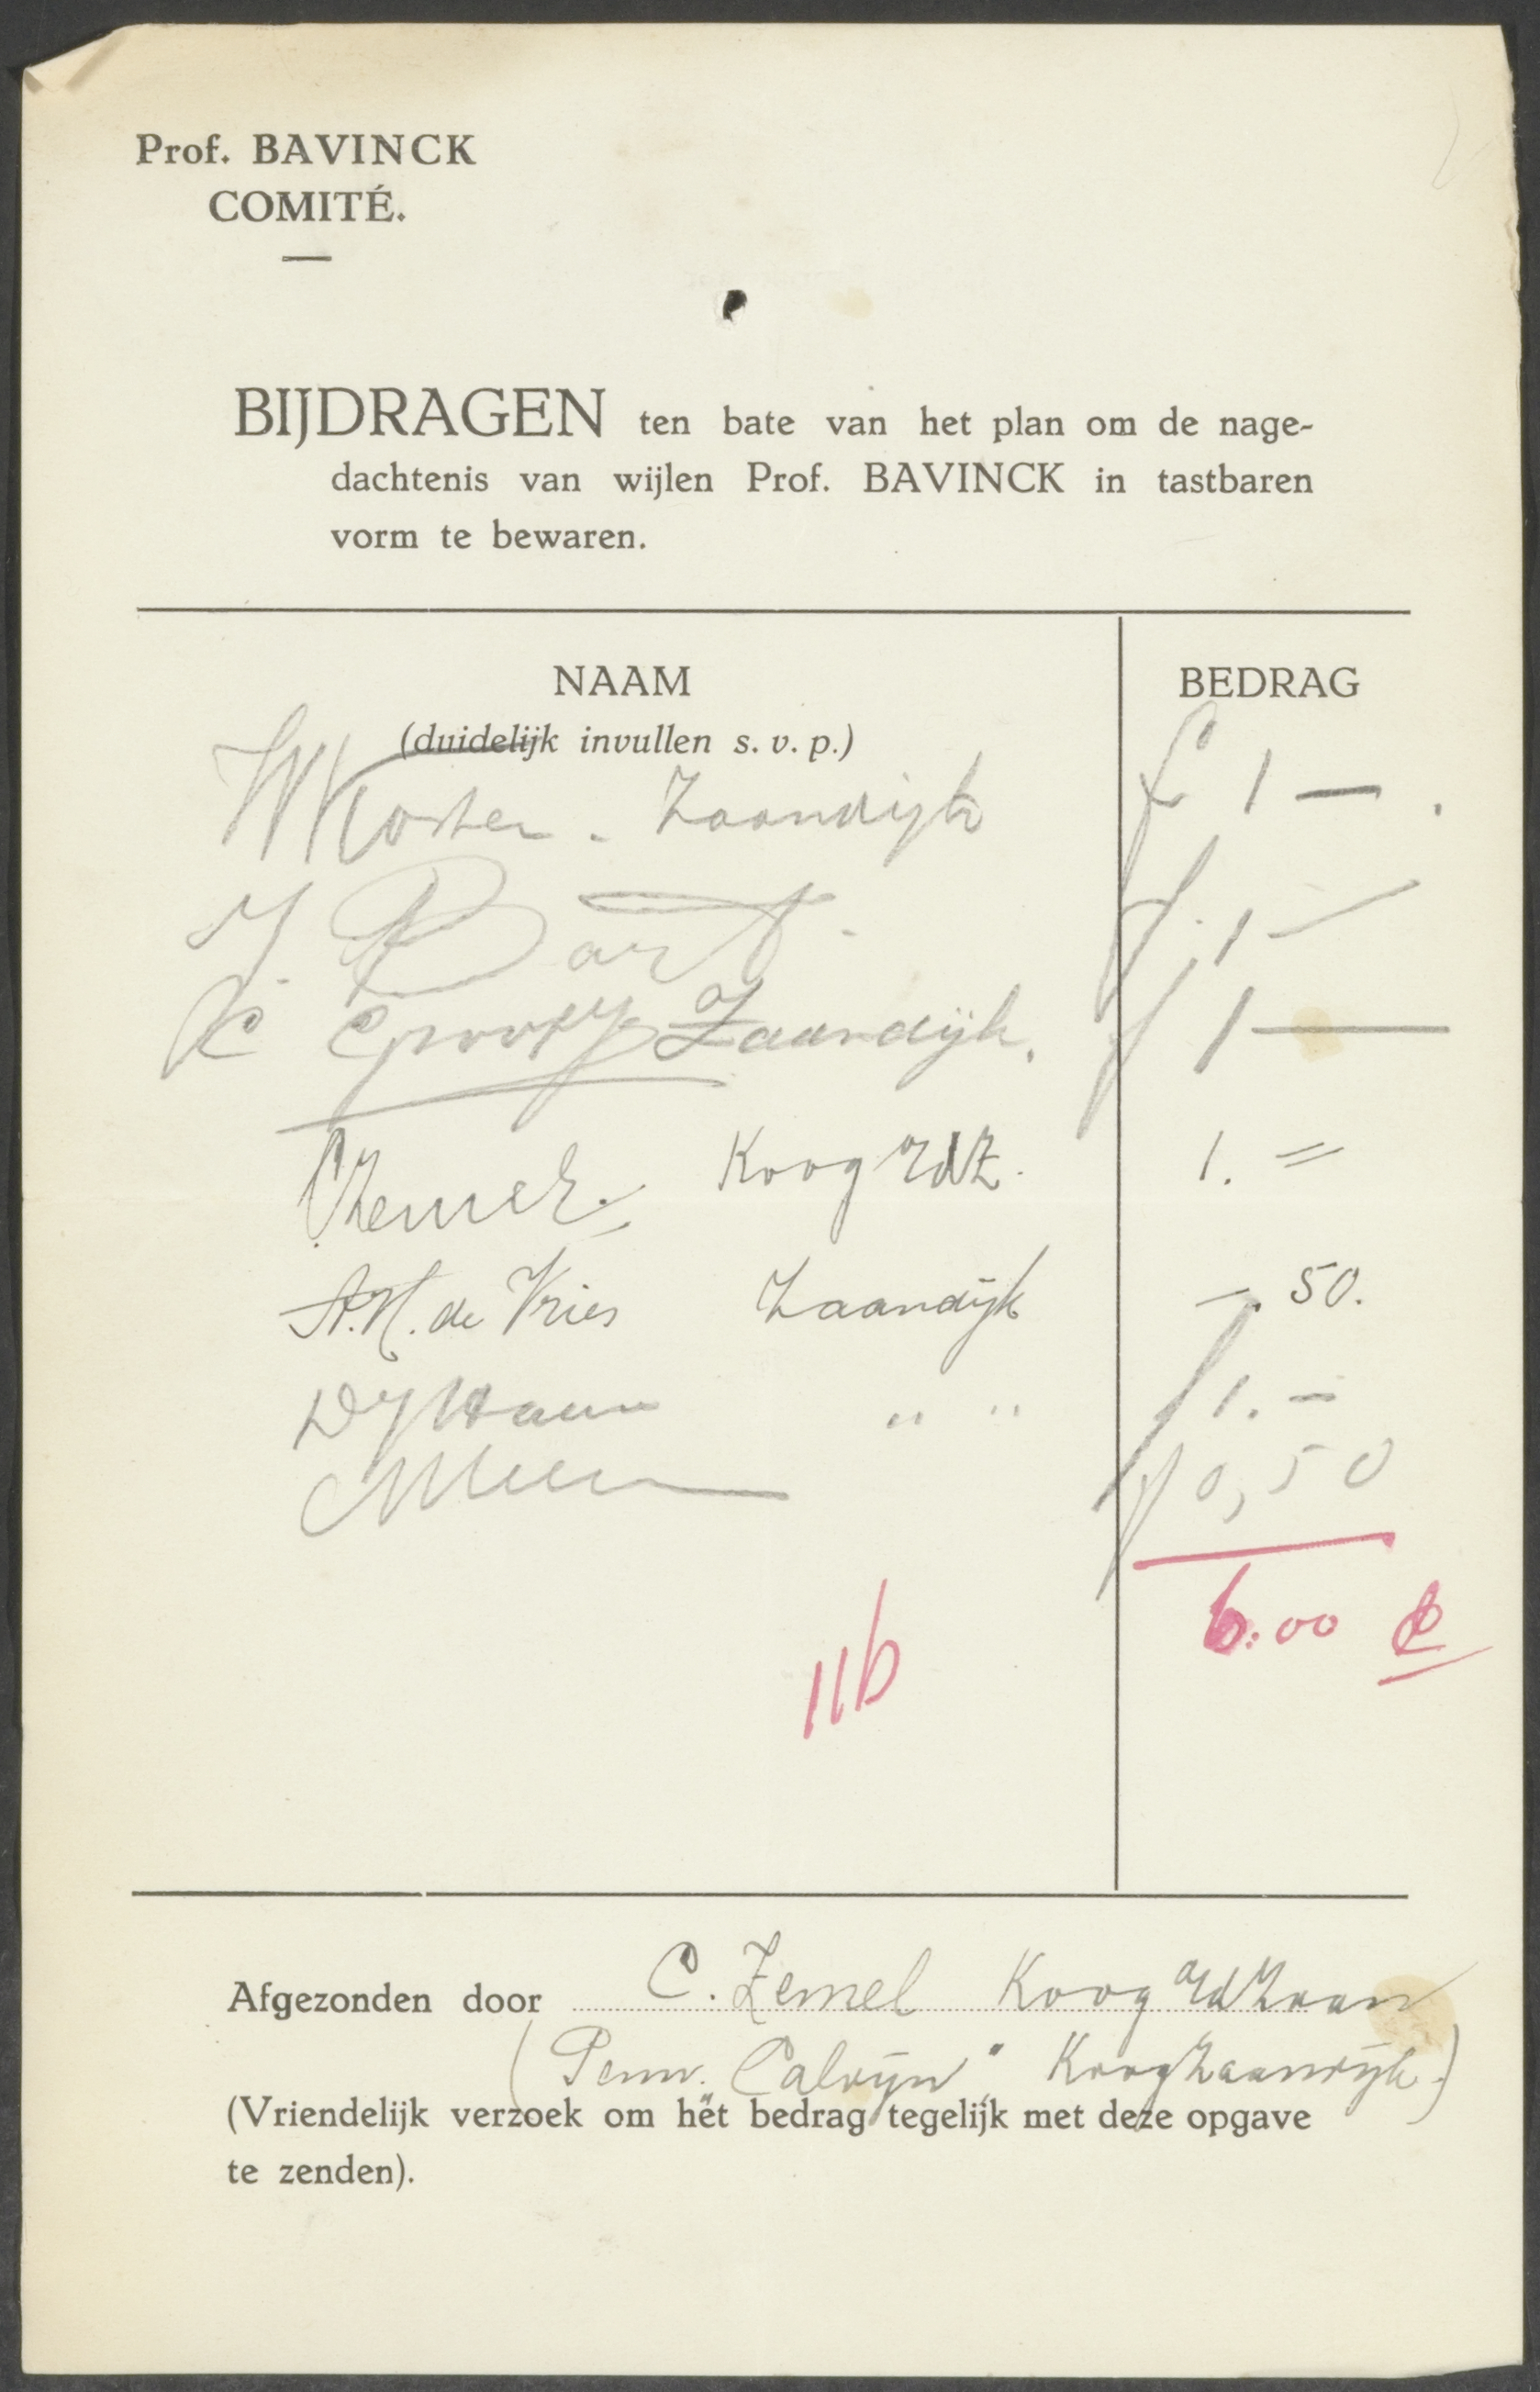 Prof. BAVINCK
COMITÉ.
BIJDRAGEN ten bate van het plan om de nage-
dachtenis van wijlen Prof. BAVINCK in tastbaren
vorm te bewaren.
NAAM BEDRAG
(duidelijk invullen s. v. p.)
W Koster. Zaandijk f 1 —.
J. Bart. f. 1 —
K Groot Zaandijk. f 1 —
C Zemel. Koog a/d Z. 1. =
A.H. de Vries Zaandijk —. 50.
" " f 1. —
f 0,50
6.00
116
Afgezonden door C. Zemel Koog a/d Zaan
(Penn. "Calvijn" Koog Zaandijk.)
(Vriendelijk verzoek om het bedrag tegelijk met deze opgave
te zenden).